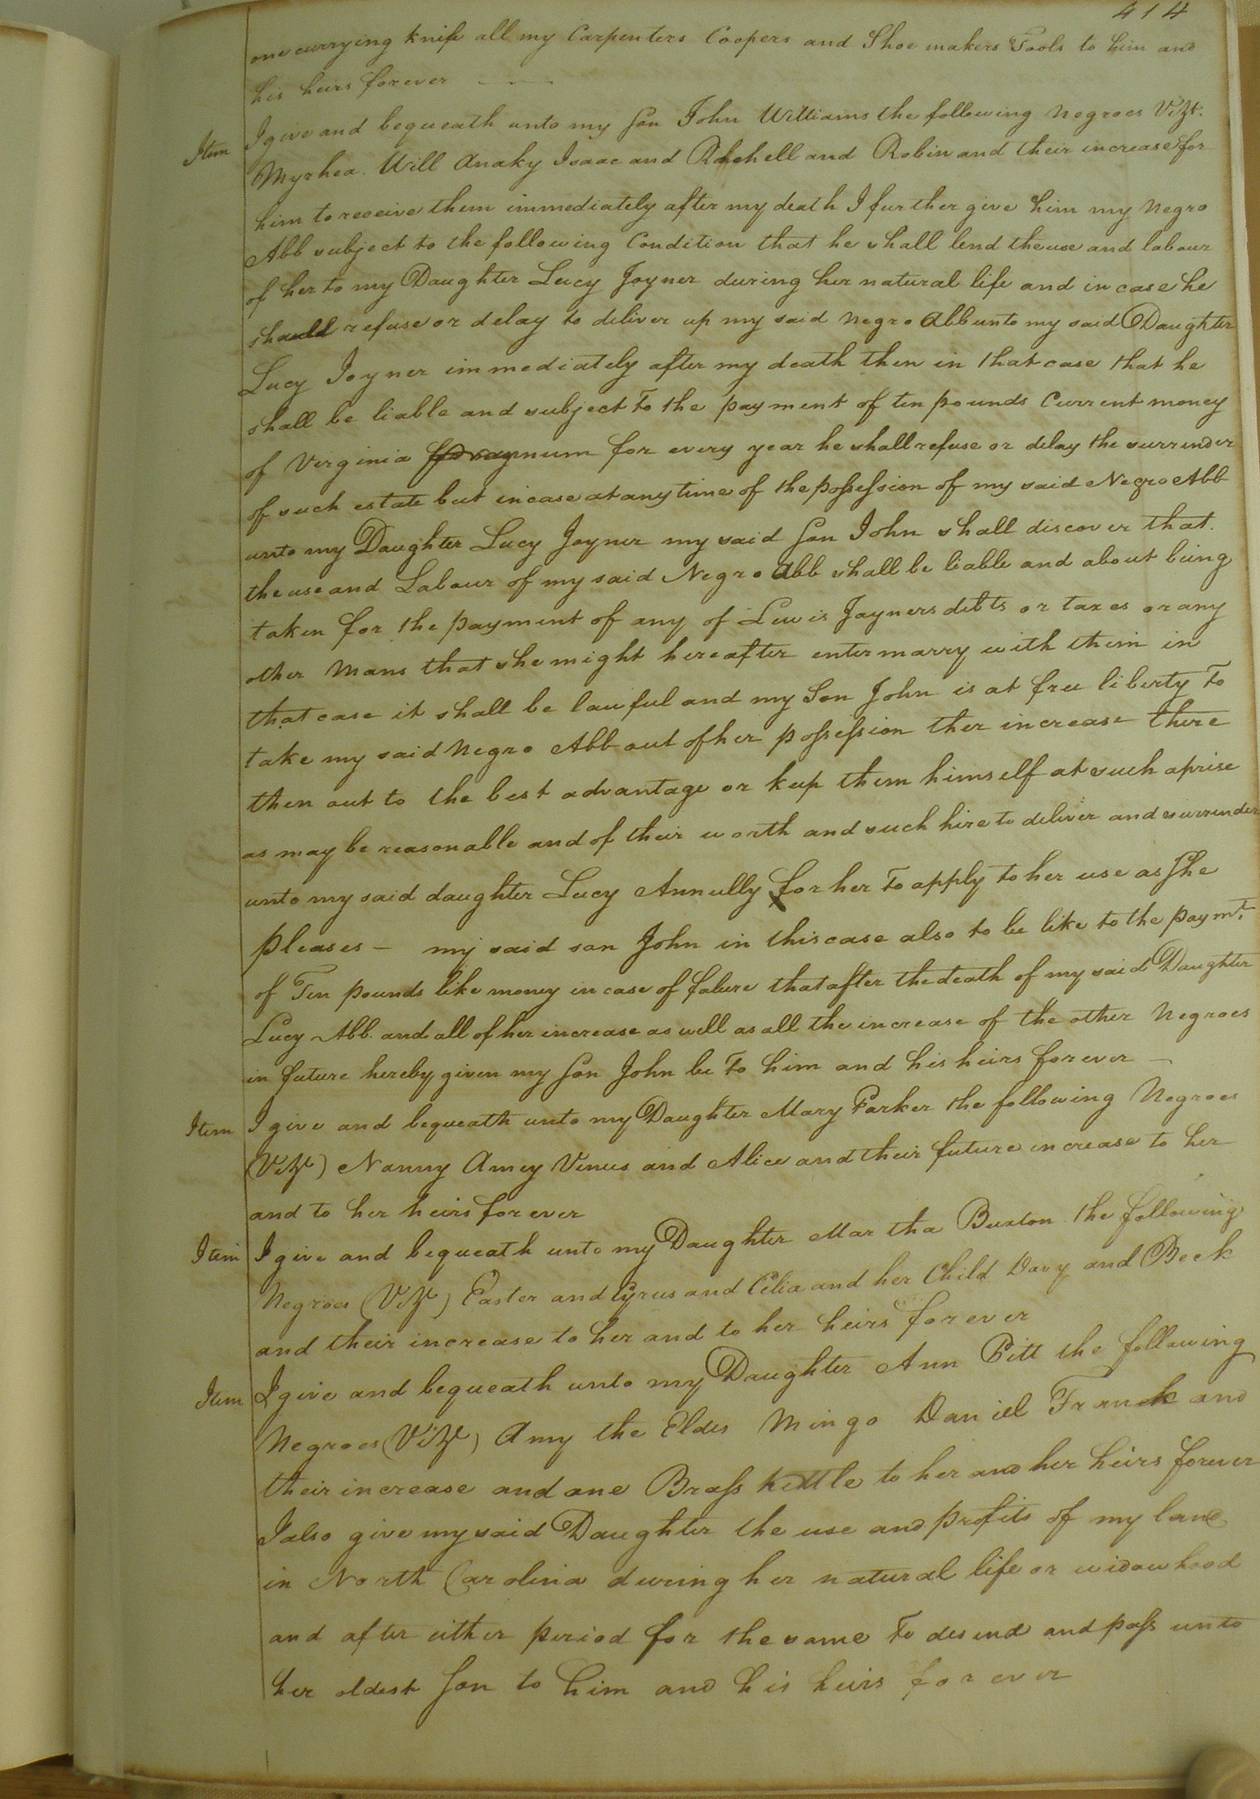 414
one currying knife all my Carpenters Coopers and Shoe makers Tools to him and
his heirs forever
Item I give and bequeath unto my Son John Williams the following Negroes Vizt.
Myrhea. Will Anaky Isaac and Rachell and Robin and their increase for
him to receive them immediately after my death I further give him my Negro
Abb subject to the following Condition that he shall lend the use and labour
of her to my Daughter Lucy Joyner during her natural life and in case he
should refuse or delay to deliver up my said negro Abb unto my said Daughter
Lucy Joyner immediately after my death then in that case that he
shall be liable and subject To the payment of ten pounds Current money
of Virginia for every year he shall refuse or delay the surrender
of such estate but in case at any time of the possession of my said Negro Abb
unto my Daughter Lucy Joyner my said Son John shall discover that
the use and Labour of my said Negro Abb shall be liable and about being
taken for the payment of any of Lewis Jayners debts or taxes or any
other Mans that she might hereafter entermarry with them in
that case it shall be lawful and my Son John is at free liberty To
take my said Negro Abb out of her possession ther increase there
then out to the best advantage or keep them himself at such a prise
as may be reasonable and of their worth and such hire to deliver and surrender
unto my said daughter Lucy Annully for her To apply to her use as She
pleases — my said son John in this case also to be like to the paymt.
of Ten pounds like money in case of falure that after the death of my said Daughter
Lucy Abb. and all of her increase as well as all the increase of the other Negroes
in future hereby given my Son John be To him and his heirs forever —
Item I give and bequeath unto my Daughter Mary Parker the following Negroes
(Vizt) Nanny Amey Venus and Alice and their future increase to her
and to her heirs forever
Item I give and bequeath unto my Daughter Martha Buxton the following
Negroes (Vizt) Easter and Cyrus and Celia and her Child Davy and Beck
and their increase to her and to her heirs forever
Item I give and bequeath unto my Daughter Ann Pitt the following
Negroes (Vizt) Amy the Eldes Mingo Daniel Franck and
their increase and one Brass kettle to her and her heirs forever
I also give my said Daughter the use and profits of my land
in North Carolina during her natural life or widowhood
and after either period for the same To desend and pass unto
her oldest Son to him and his heirs forever